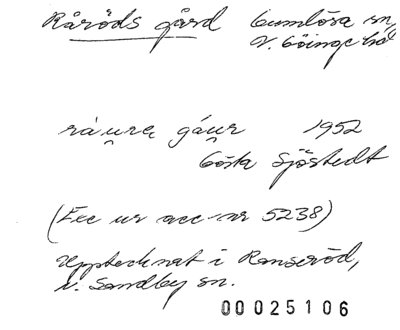 Råröds gård Gumlösa sn,
V. Göinge hd
rá u̯rę gáu̯r 1952
Gösta Sjöstedt
(Exc ur acc-nr 5238)
Upptecknat i Ranseröd,
N. Sandby sn.
00025106